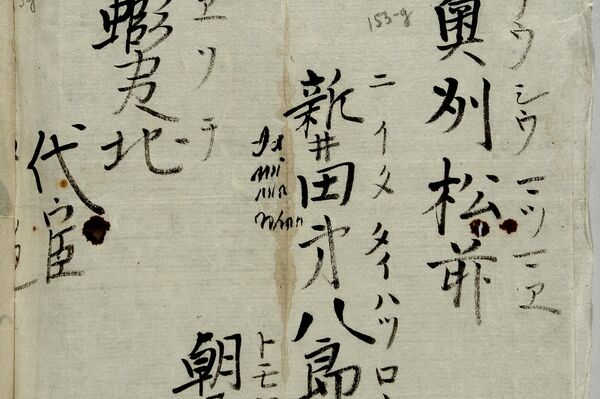 153-g
ウシウマツマエ
奥州松前
ニイタタイハツロ
新井田㐧八郎
トモ
朝
エソチ
蝦夷地
代官